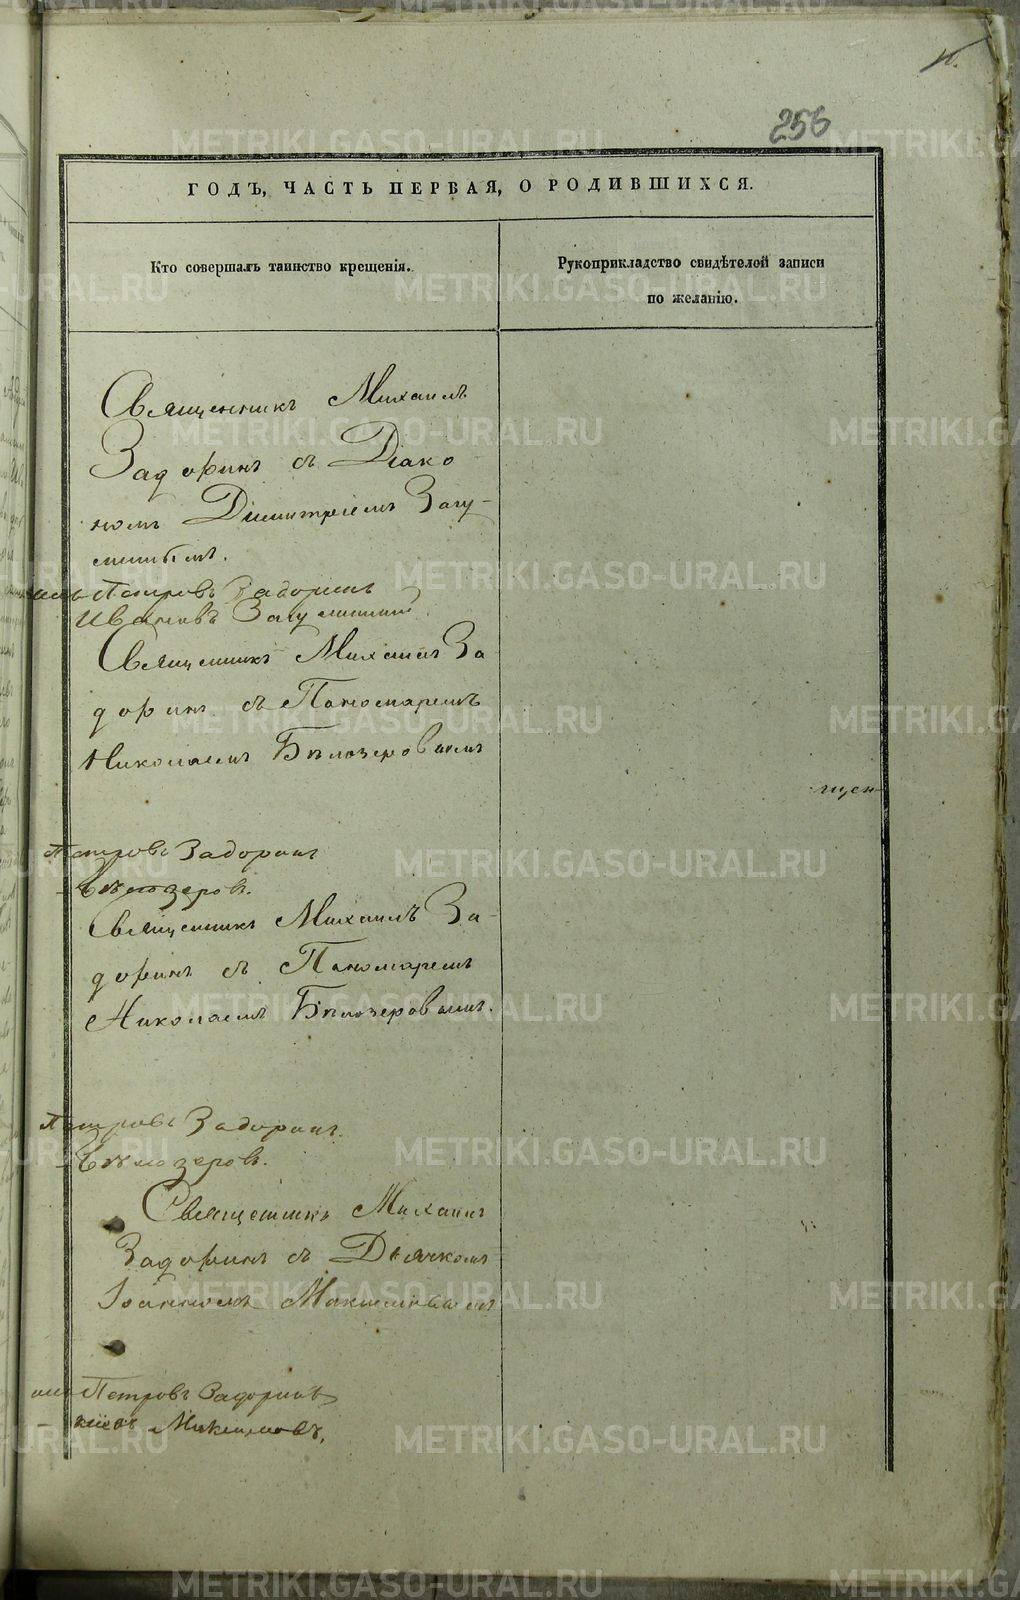 256
ГОДЪ, ЧАСТЬ ПЕРВАЯ, О РОДИВШИХСЯ.
Кто совершалъ таинство крещенія.
Рукоприкладство свидѣтелей записи
по желанію.
Священникъ Михаилъ
Задоринъ съ Діако
номъ Димитріемъ Загу-
Петровъ Задоринъ
Ивановъ
Священникъ Михаилъ За
доринъ съ Пономаремъ
Николаемъ Бѣлозеровымъ
Петровъ Задоринъ
Бѣлозеровъ.
Священникъ Михаилъ За-
доринъ съ Пономаремъ
Николаемъ Бѣлозеровымъ.
Петровъ Задоринъ.
Бѣлозеровъ.
Священникъ Михаилъ
Задоринъ съ Дьячкомъ
Іоанномъ Максимовымъ
Петровъ Задоринъ
Максимовъ.
METRIKI.GASO-URAL.RU